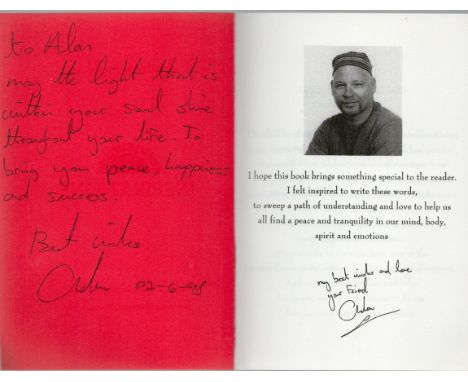 to Alan
may the light that is
within your soul shine
throughout your life. To
bring you peace, happiness
and success.
Best wishes
02-6-98
I hope this book brings something special to the reader.
I felt inspired to write these words,
to sweep a path of understanding and love to help us
all find a peace and tranquility in our mind, body,
spirit and emotions
my best wishes and love
your friend